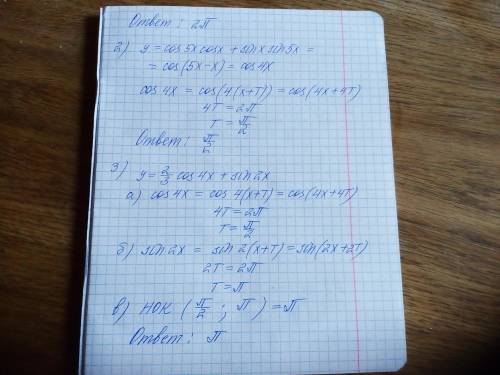 Ответ: 2π
2) y = cos5x cosx + sinx sin5x =
= cos(5x-x) = cos4x
cos4x = cos(4(x+T)) = cos(4x+4T)
4T = 2π
T = π/2
Ответ: π/2
3) y = 2/3 cos4x + sin2x
а) cos4x = cos4(x+T) = cos(4x+4T)
4T = 2π
T = π/2
б) sin2x = sin2(x+T) = sin(2x+2T)
2T = 2π
T = π
в) НОК (π/2 ; π) = π
Ответ: π